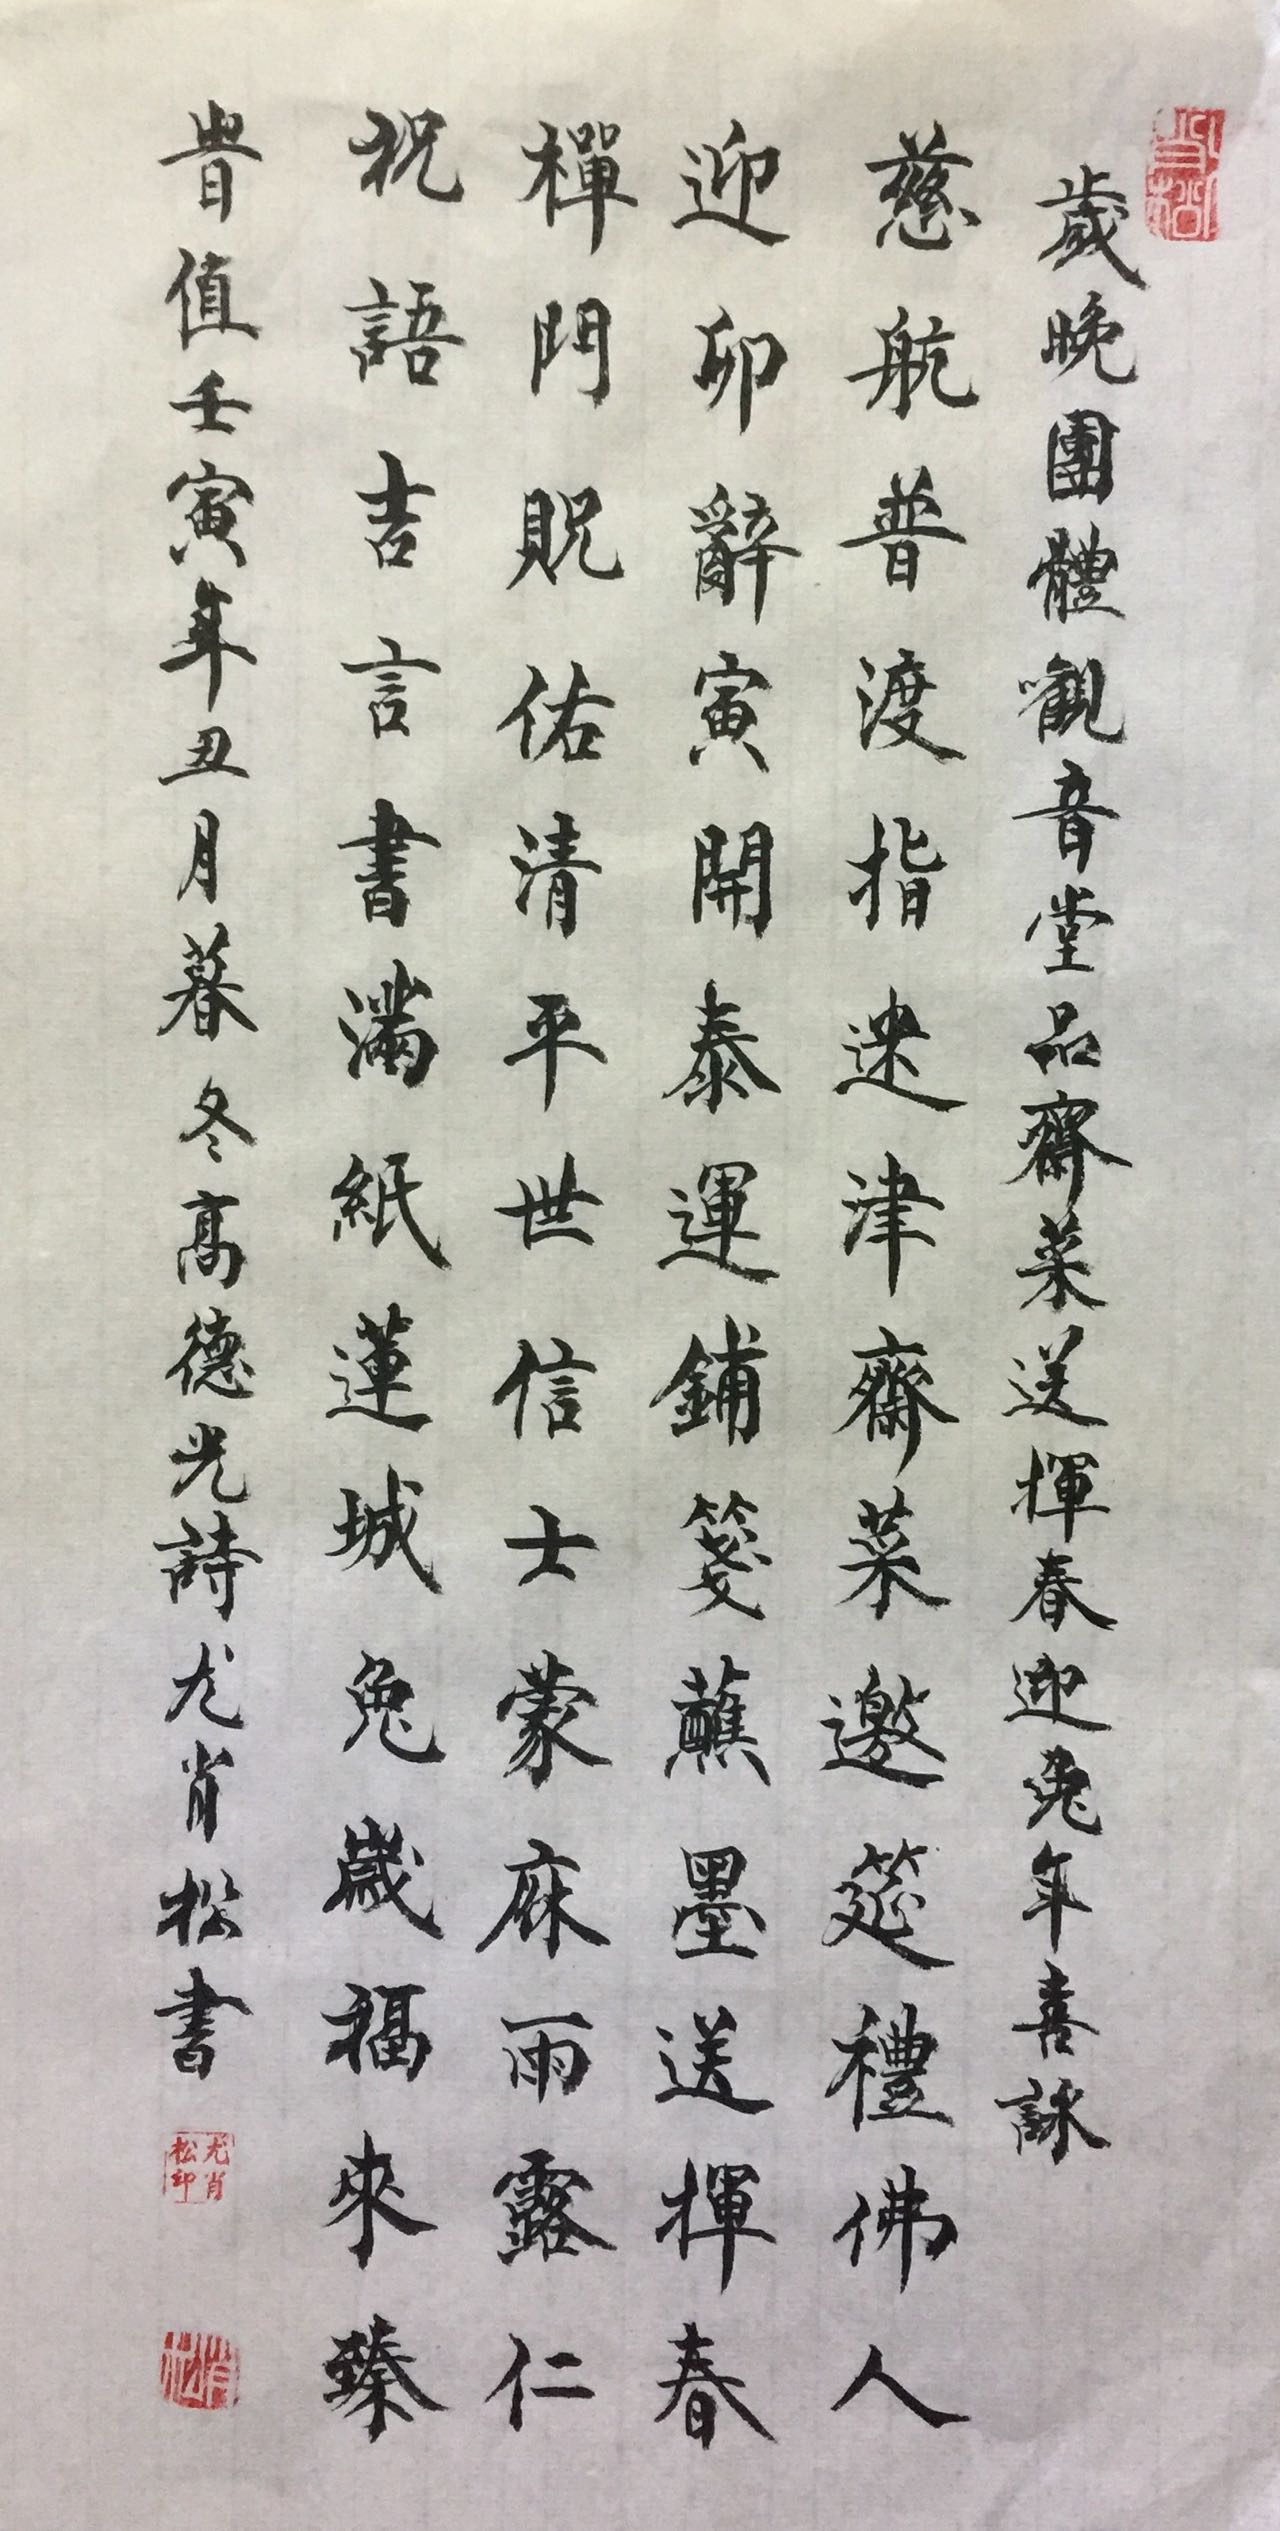 歲晚團體觀音堂品齋菜送揮春迎兔年喜詠
慈航普渡指迷津齋菜邀筵禮佛人
迎卯辭寅開泰運鋪箋蘸墨送揮春
禪門貺佑清平世信士蒙庥雨露仁
祝語吉言書滿紙蓮城兔歲福來臻
旹值壬寅年丑月暮冬高德光詩尤肖松書
尤肖松印